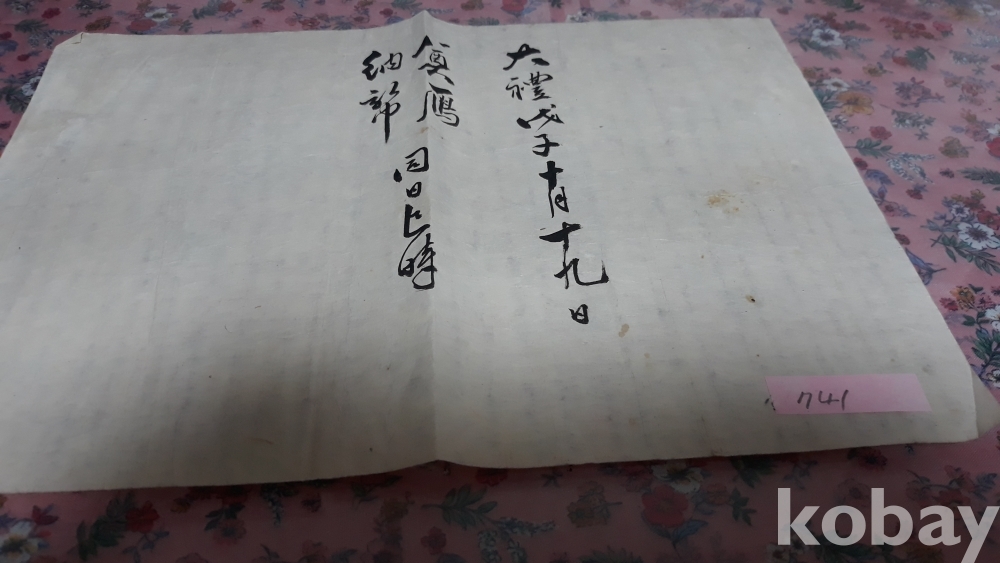 大禮戊子十月十九日
奠鴈
納幣 同日上時
741
kobay